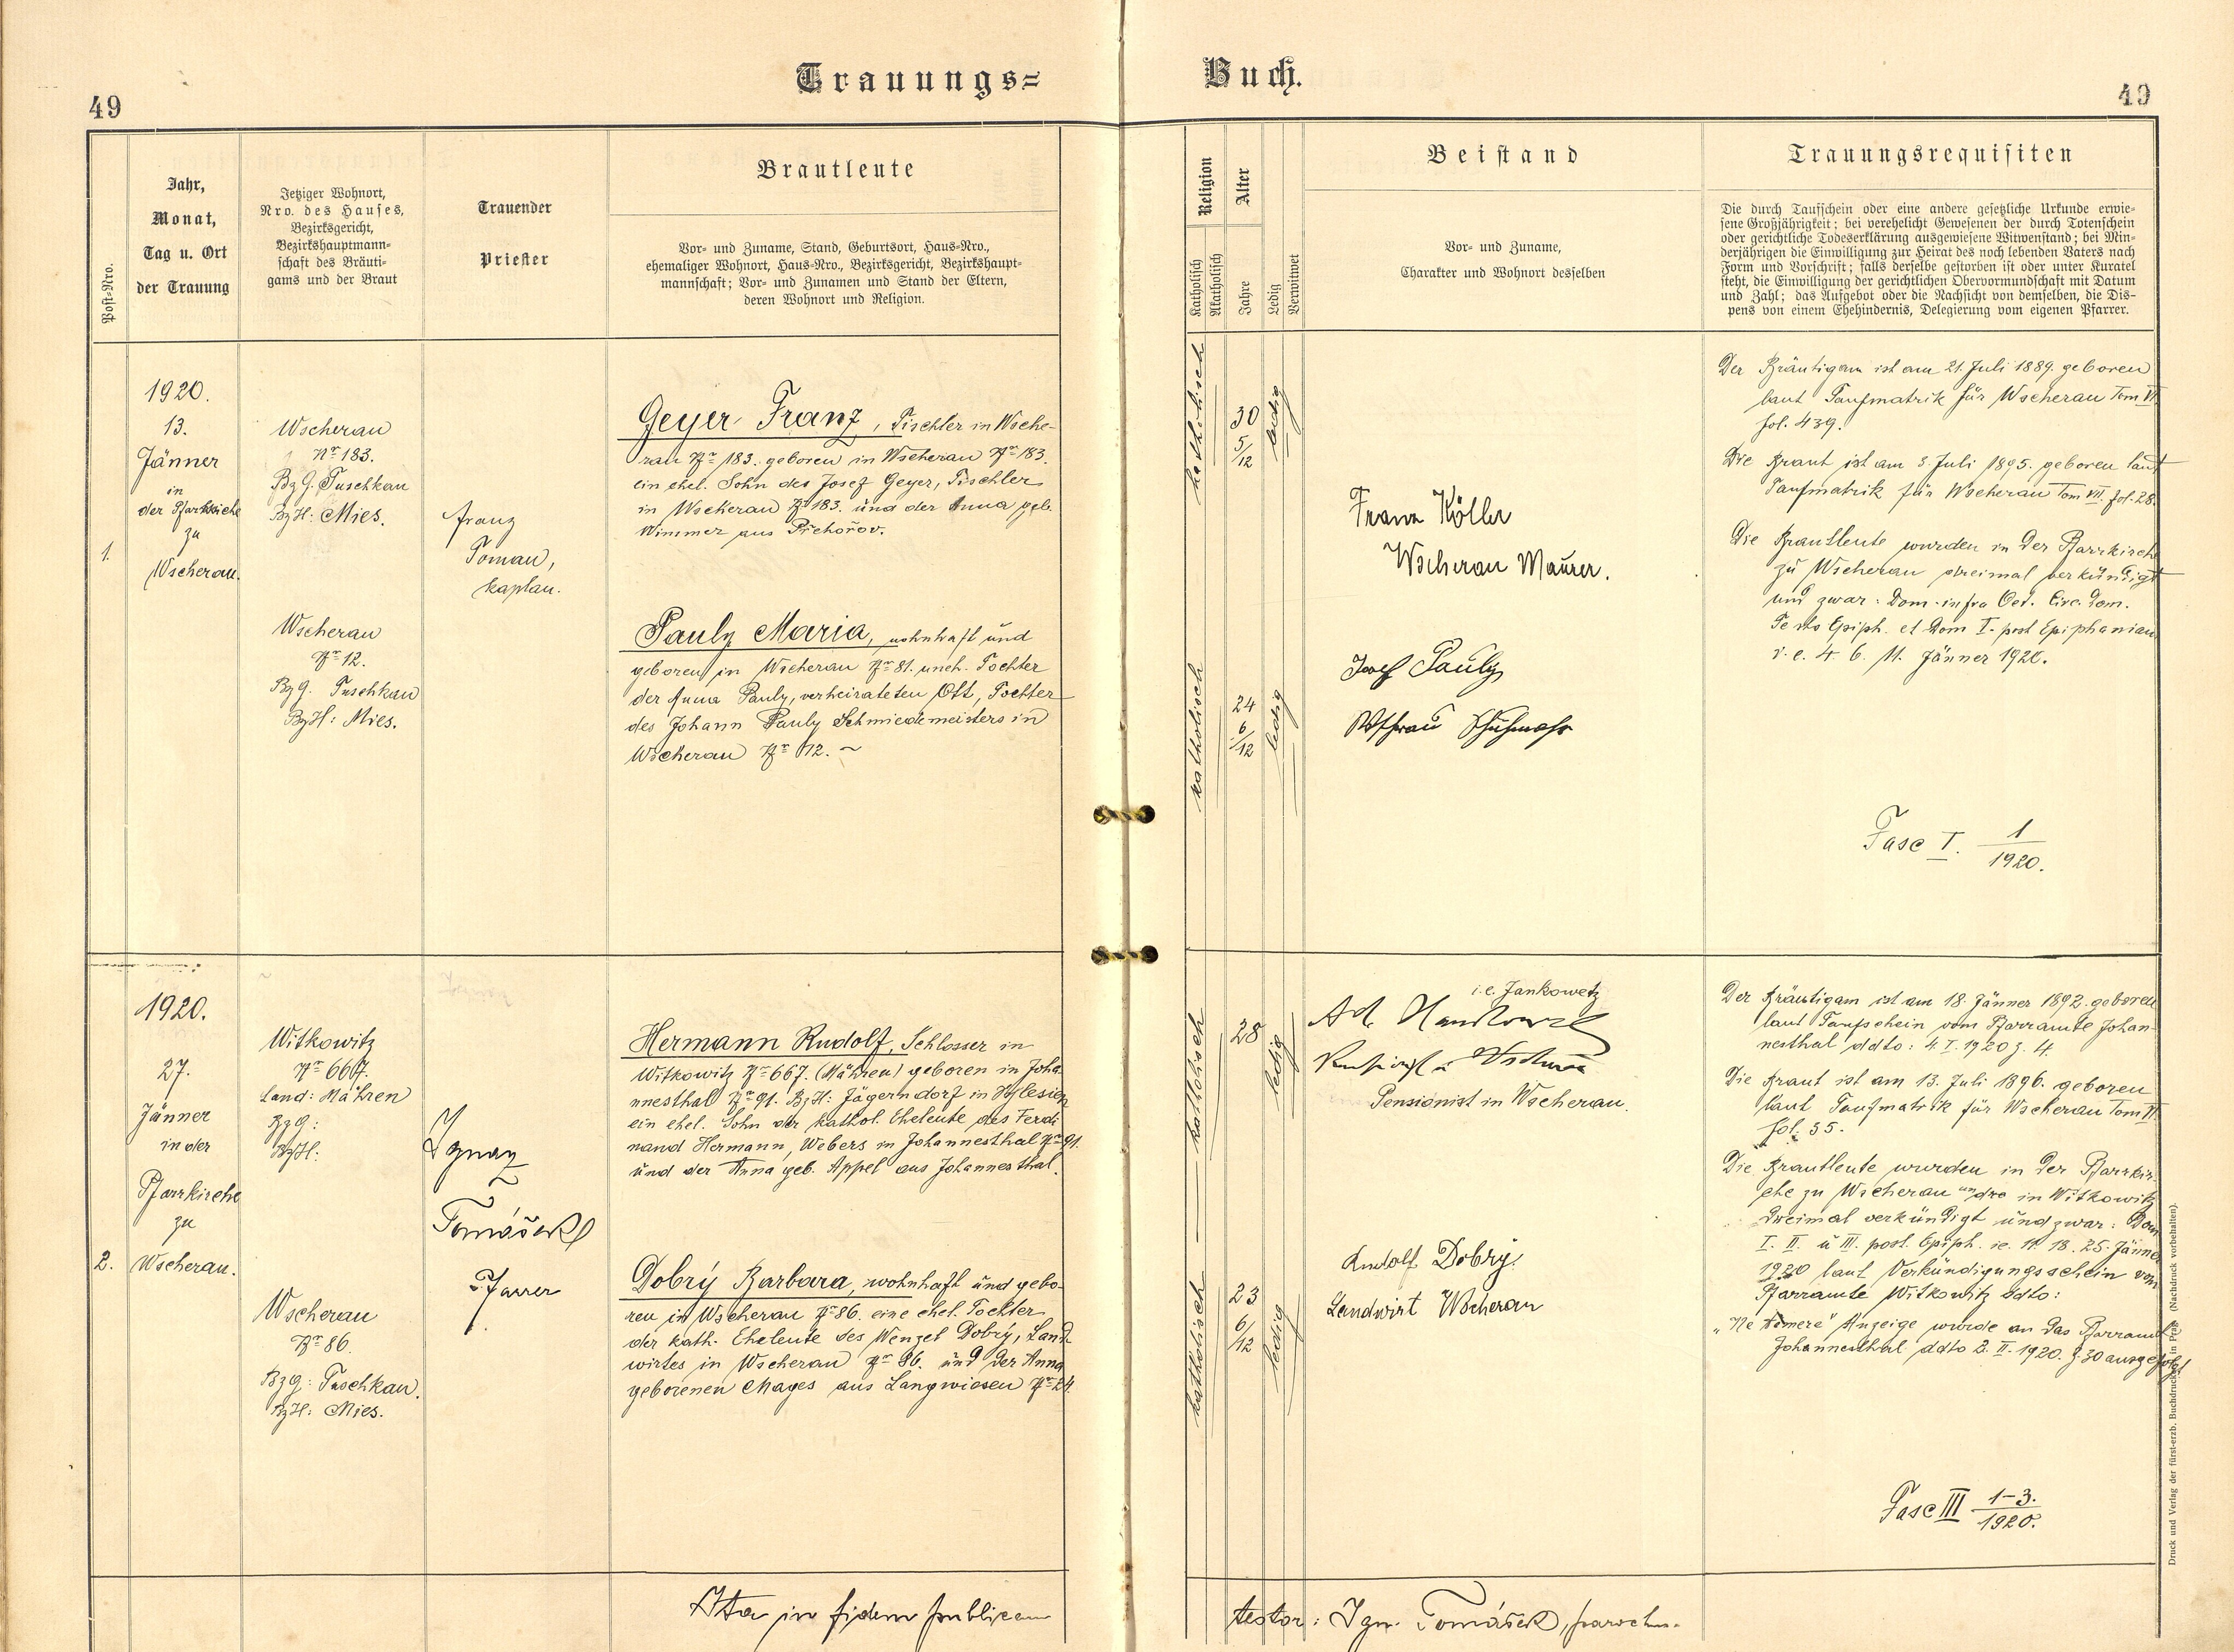 Trauungs=
Buch.
49
49
Post=Nro.
Jahr,
Monat,
Tag u. Ort
der Trauung
Jetziger Wohnort,
Nro. des Hauses,
Bezirksgericht,
Bezirkshauptmann=
schaft des Bräuti=
gams und der Braut
Trauender
Priester
Brautleute
Vor= und Zuname, Stand, Geburtsort, Haus=Nro.,
ehemaliger Wohnort, Haus=Nro., Bezirksgericht, Bezirkshaupt=
mannschaft; Vor= und Zunamen und Stand der Eltern,
deren Wohnort und Religion.
Religion
Katholisch
Akatholisch
Alter
Jahre
Ledig
Verwitwet
Beistand
Vor= und Zuname,
Charakter und Wohnort desselben
Trauungsrequisiten
Die durch Taufschein oder eine andere gesetzliche Urkunde erwie=
sene Großjährigkeit; bei verehelicht Gewesenen der durch Totenschein
oder gerichtliche Todeserklärung ausgewiesene Witwenstand; bei Min=
derjährigen die Einwilligung zur Heirat des noch lebenden Vaters nach
Form und Vorschrift; falls derselbe gestorben ist oder unter Kuratel
steht, die Einwilligung der gerichtlichen Obervormundschaft mit Datum
und Zahl; das Aufgebot oder die Nachsicht von demselben, die Dis=
pens von einem Ehehindernis, Delegierung vom eigenen Pfarrer.
1.
1920.
13.
Jänner
in
der Pfarrkirche
zu
Wscherau.
Wscherau
Nr 183.
BzG. Tuschkau
BzH: Mies.
Wscherau
Nr 12.
BzG. Tuschkau
BzH: Mies.
Franz
Toman,
Kaplan.
Geyer Franz, Tischler in Wsche-
rau Nr 183. geboren in Wscherau Nr 183.
ein ehel. Sohn des Josef Geyer, Tischlers
in Wscherau Nr 183. und der Anna geb.
Wimmer aus Přehořov.
Pauly Maria, wohnhaft und
geboren in Wscherau Nr 81. uneh. Tochter
der Anna Pauly, verheirateten Ott, Tochter
des Johann Pauly Schmiedemeisters in
Wscherau Nr 12. ~
katholisch
30
5/12
ledig
katholisch
24
6/12
ledig
Franz Köller
Wscherau Maurer.
Josef Pauly
Wscherau
Der Bräutigam ist am 21. Juli 1889. geboren
laut Taufmatrik für Wscherau Tom VI.
fol. 439.
Die Braut ist am 3. Juli 1895. geboren laut
Taufmatrik für Wscherau Tom VII. fol. 28.
Die Brautleute wurden in der Pfarrkirche
zu Wscherau dreimal verkündigt
und zwar: Dom. infra Oct. Circ. Dom.
Festo Epiph. et Dom I. post Epiphaniam
i. e. 4. 6. 11. Jänner 1920.
Fasc I. 1/1920.
2.
1920.
27.
Jänner
in der
Pfarrkirche
zu
Wscherau.
Witkowitz
Nr 667.
Land: Mähren
BzG:
BzH:
Wscherau
Nr 86.
BzG: Tuschkau.
BzH: Mies.
Ignaz
Tomášek
Pfarrer
Hermann Rudolf, Schlosser in
Witkowitz Nr 667. (Mähren) geboren in Joha-
nnesthal Nr 91. BzH: Jägerndorf in Schlesien
ein ehel. Sohn der kathol. Eheleute des Ferdi
nand Hermann, Webers in Johannesthal Nr 91.
und der Anna geb. Appel aus Johannesthal.
Dobrý Barbara, wohnhaft und gebo-
ren in Wscherau Nr 86. eine ehel. Tochter
der kath. Eheleute des Wenzel Dobrý, Land-
wirtes in Wscherau Nr 86. und der Anna
geborenen Mages aus Langwiesen Nr 24.
katholisch
28
ledig
katholisch
23
6/12
ledig
i.e. Jankowetz
Pensionist in Wscherau.
Rudolf Dobrý.
Landwirt Wscherau
Der Bräutigam ist am 18. Jänner 1892. geboren
laut Taufschein vom Pfarramte Johan-
nesthal ddto: 4. I. 1920 Z. 4.
Die Braut ist am 13. Juli 1896. geboren
laut Taufmatrik für Wscherau Tom VII.
fol. 55.
Die Brautleute wurden in der Pfarrkir-
che zu Wscherau und in Witkowitz
dreimal verkündigt und zwar: Dom
I. II. u III. post. Epiph. ie. 11. 18. 25. Jänner
1920 laut Verkündigungsschein vom
Pfarramte Witkowitz ddto:
„Ne temere" Anzeige wurde an das Pfarramt
Johannesthal ddto 2. II. 1920. Z. 30 ausgefolgt
Fasc III 1-3./1920.
Ita in fidem publicam
testor: Ign. Tomášek, parochus.
Druck und Verlag der fürst-erzb. Buchdruckerei in Prag. (Nachdruck vorbehalten).